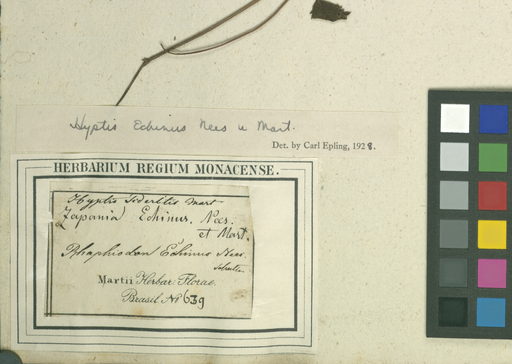 Hyptis Echinus Nees u Mart.
Det. by Carl Epling, 1928.
HERBARIUM REGIUM MONACENSE.
Hyptis Mart
Zapania Echinus. Nees.
et Mart.
Rhaphiodon Echinus Nees.
Schauer.
Martii Herbar. Florae
Brasil. No 639